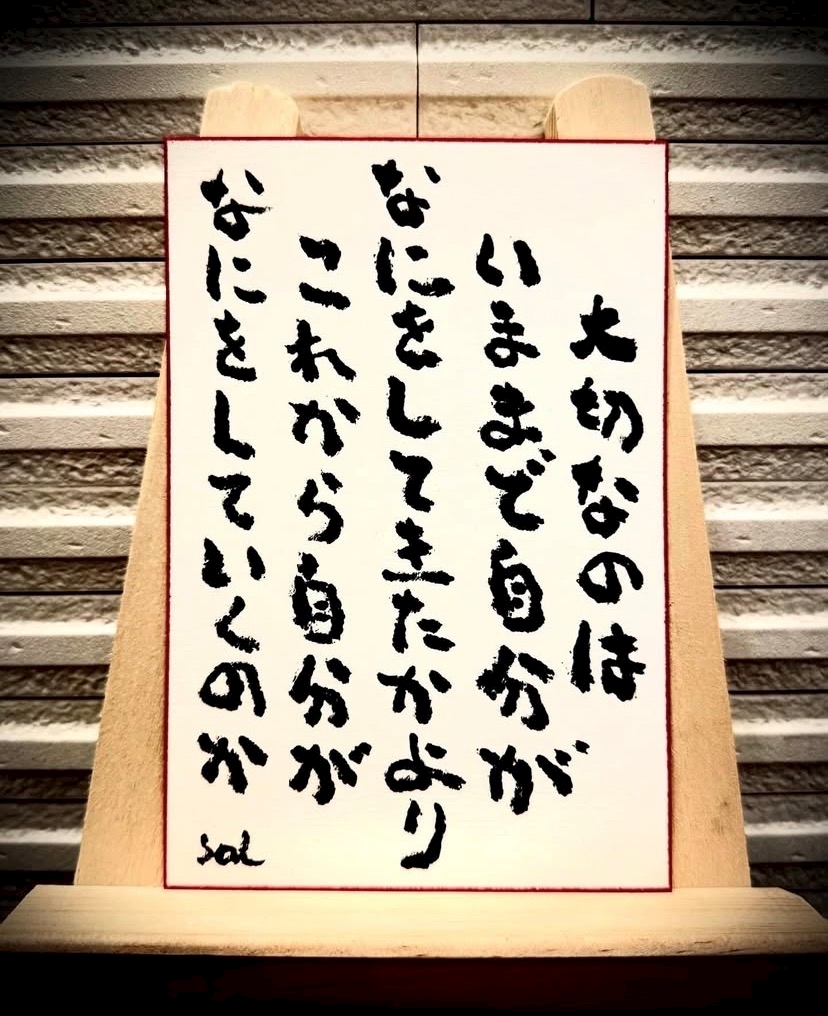 大切なのは
いままで自分が
なにをしてきたかより
これから自分が
なにをしていくのか
sat